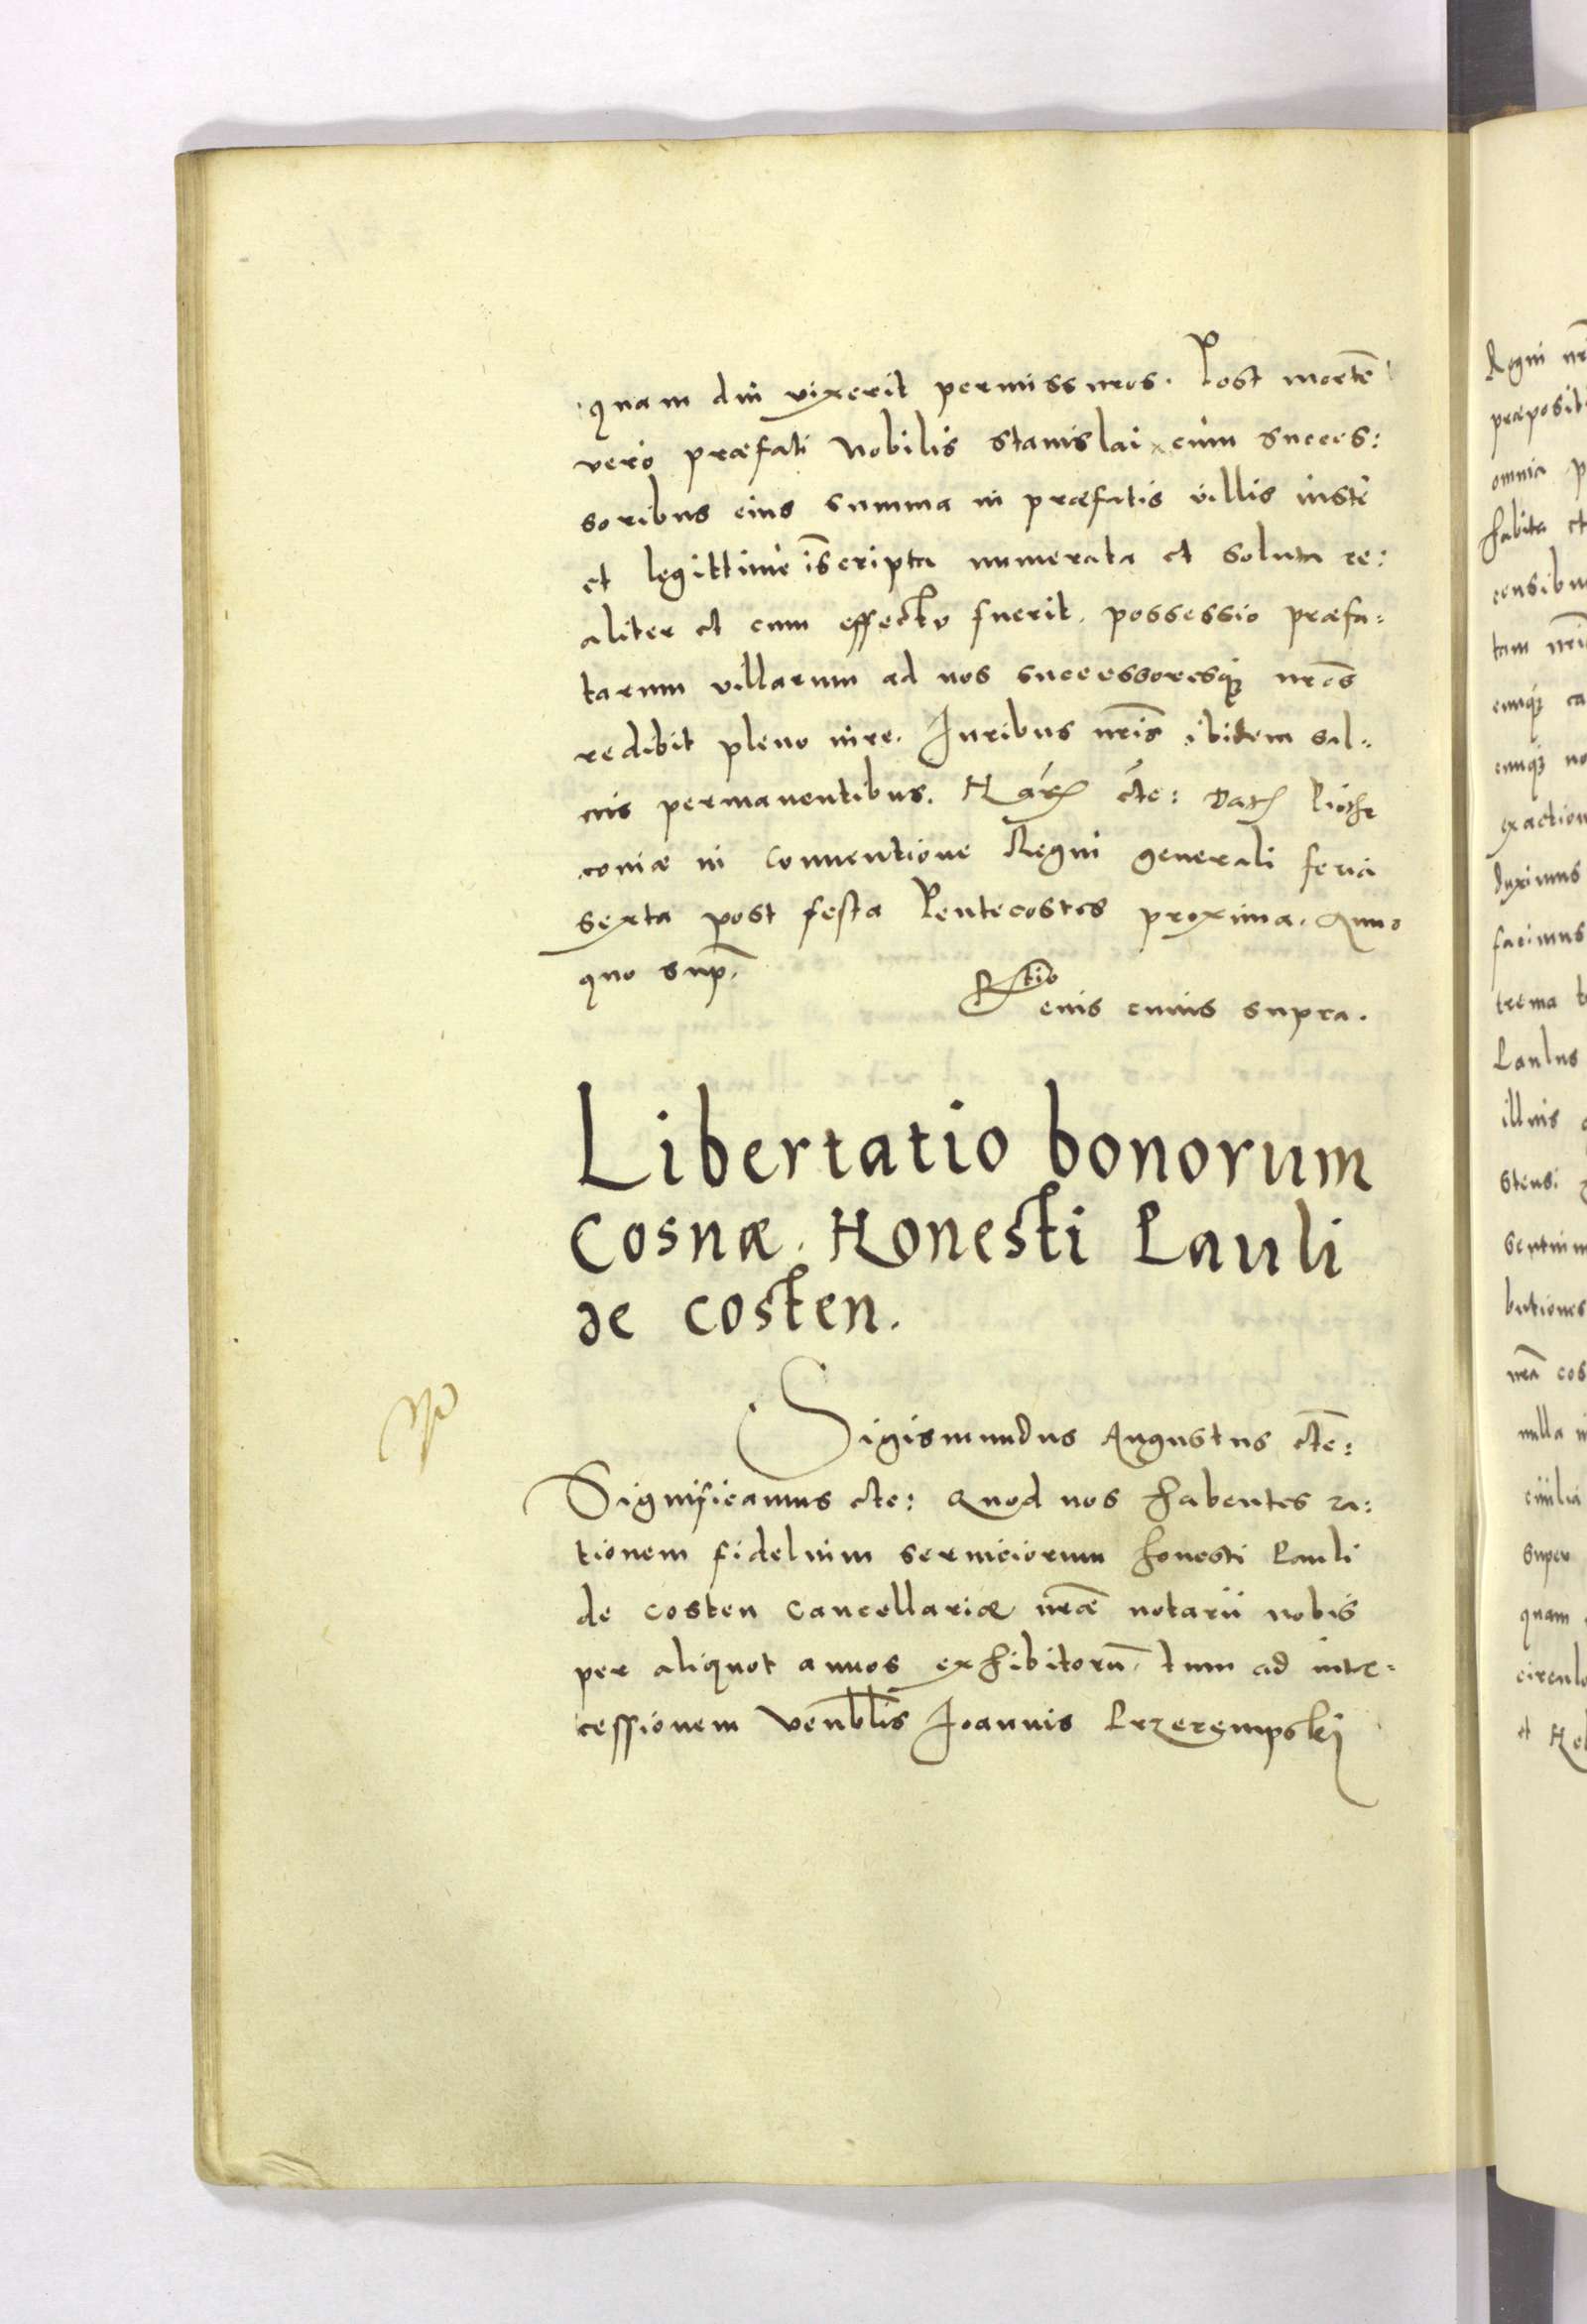 quam diu vixerit permissuros. Post mortẽ
vero præfati Nobilis Stanislai cum succes:
soribus eius summa in præfatis villis iustè
et legittimè iñscripta numerata et soluta re:
aliter et cum effectu fuerit, possessio præfa:
tarum villarum ad nos successoresq; nr̃os
redibit pleno iure. Iuribus nr̃is ibidem sal:
uis permanentibus. Har; etc: Dat; Piotr
couiæ in conuentione Regni generali feria
sexta post festa Pentecostes proxima. Anno
quo sup̃.
R̃tio
eius cuius supra.
Libertatio bonorum
Cosnæ. Honesti Pauli
de Costen.
Sigismundus Augustus etc̃:
Significamus etc: Quod nos habentes ra:
tionem fidelium seruiciorum honesti Pauli
de Costen Cancellariæ nr̃æ notarii nobis
per aliquot annos exhibitorũ, tum ad inter:
cessionem Venblis Ioannis Przerempskij
Regni nr̃
præposit
omnia p
habita et
censibu
tam nr̃i
cuiq; ca
cuiq; no
exaction
duximus
facimus
trema
Paulus
illius
stensi
butiones
nr̃a cos
nulla
ciuilia
super
quam
circulo
et